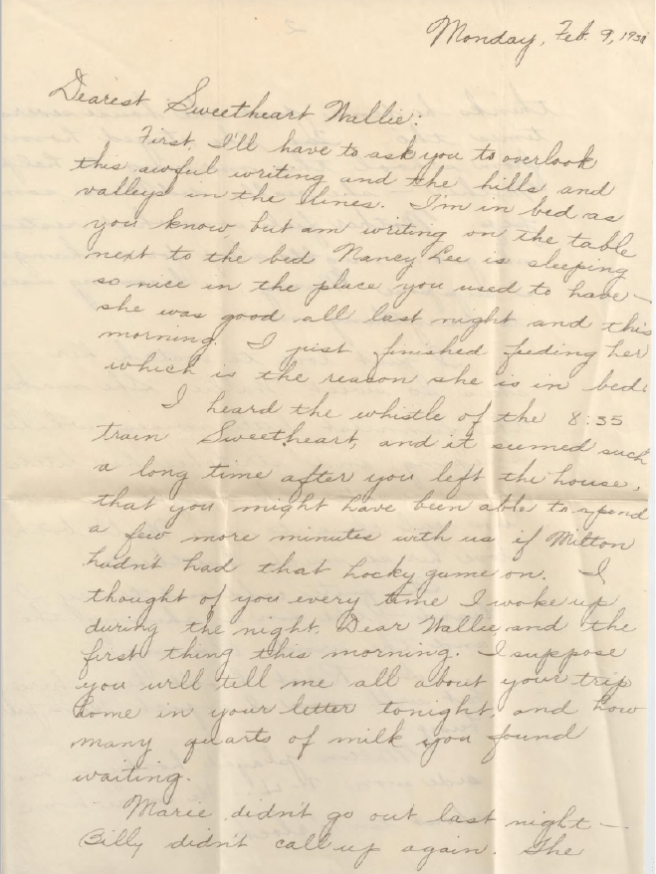 Monday, Feb. 9, 1931
Dearest Sweetheart Wallie:
First, I'll have to ask you to overlook
this awful writing and the hills and
valleys in the lines. I'm in bed as
you know but am writing on the table
next to the bed Nancy Lee is sleeping
so nice in the place you used to have —
she was good all last night and this
morning. I just finished feeding her
which is the reason she is in bed.
I heard the whistle of the 8:35
train Sweetheart, and it seemed such
a long time after you left the house,
that you might have been able to spend
a few more minutes with us if Milton
hadn't had that hocky game on. I
thought of you every time I woke up
during the night, Dear Wallie and the
first thing this morning. I suppose
you will tell me all about your trip
home in your letter tonight, and how
many quarts of milk you found
waiting.
Marie didn't go out last night —
Billy didn't call up again. She